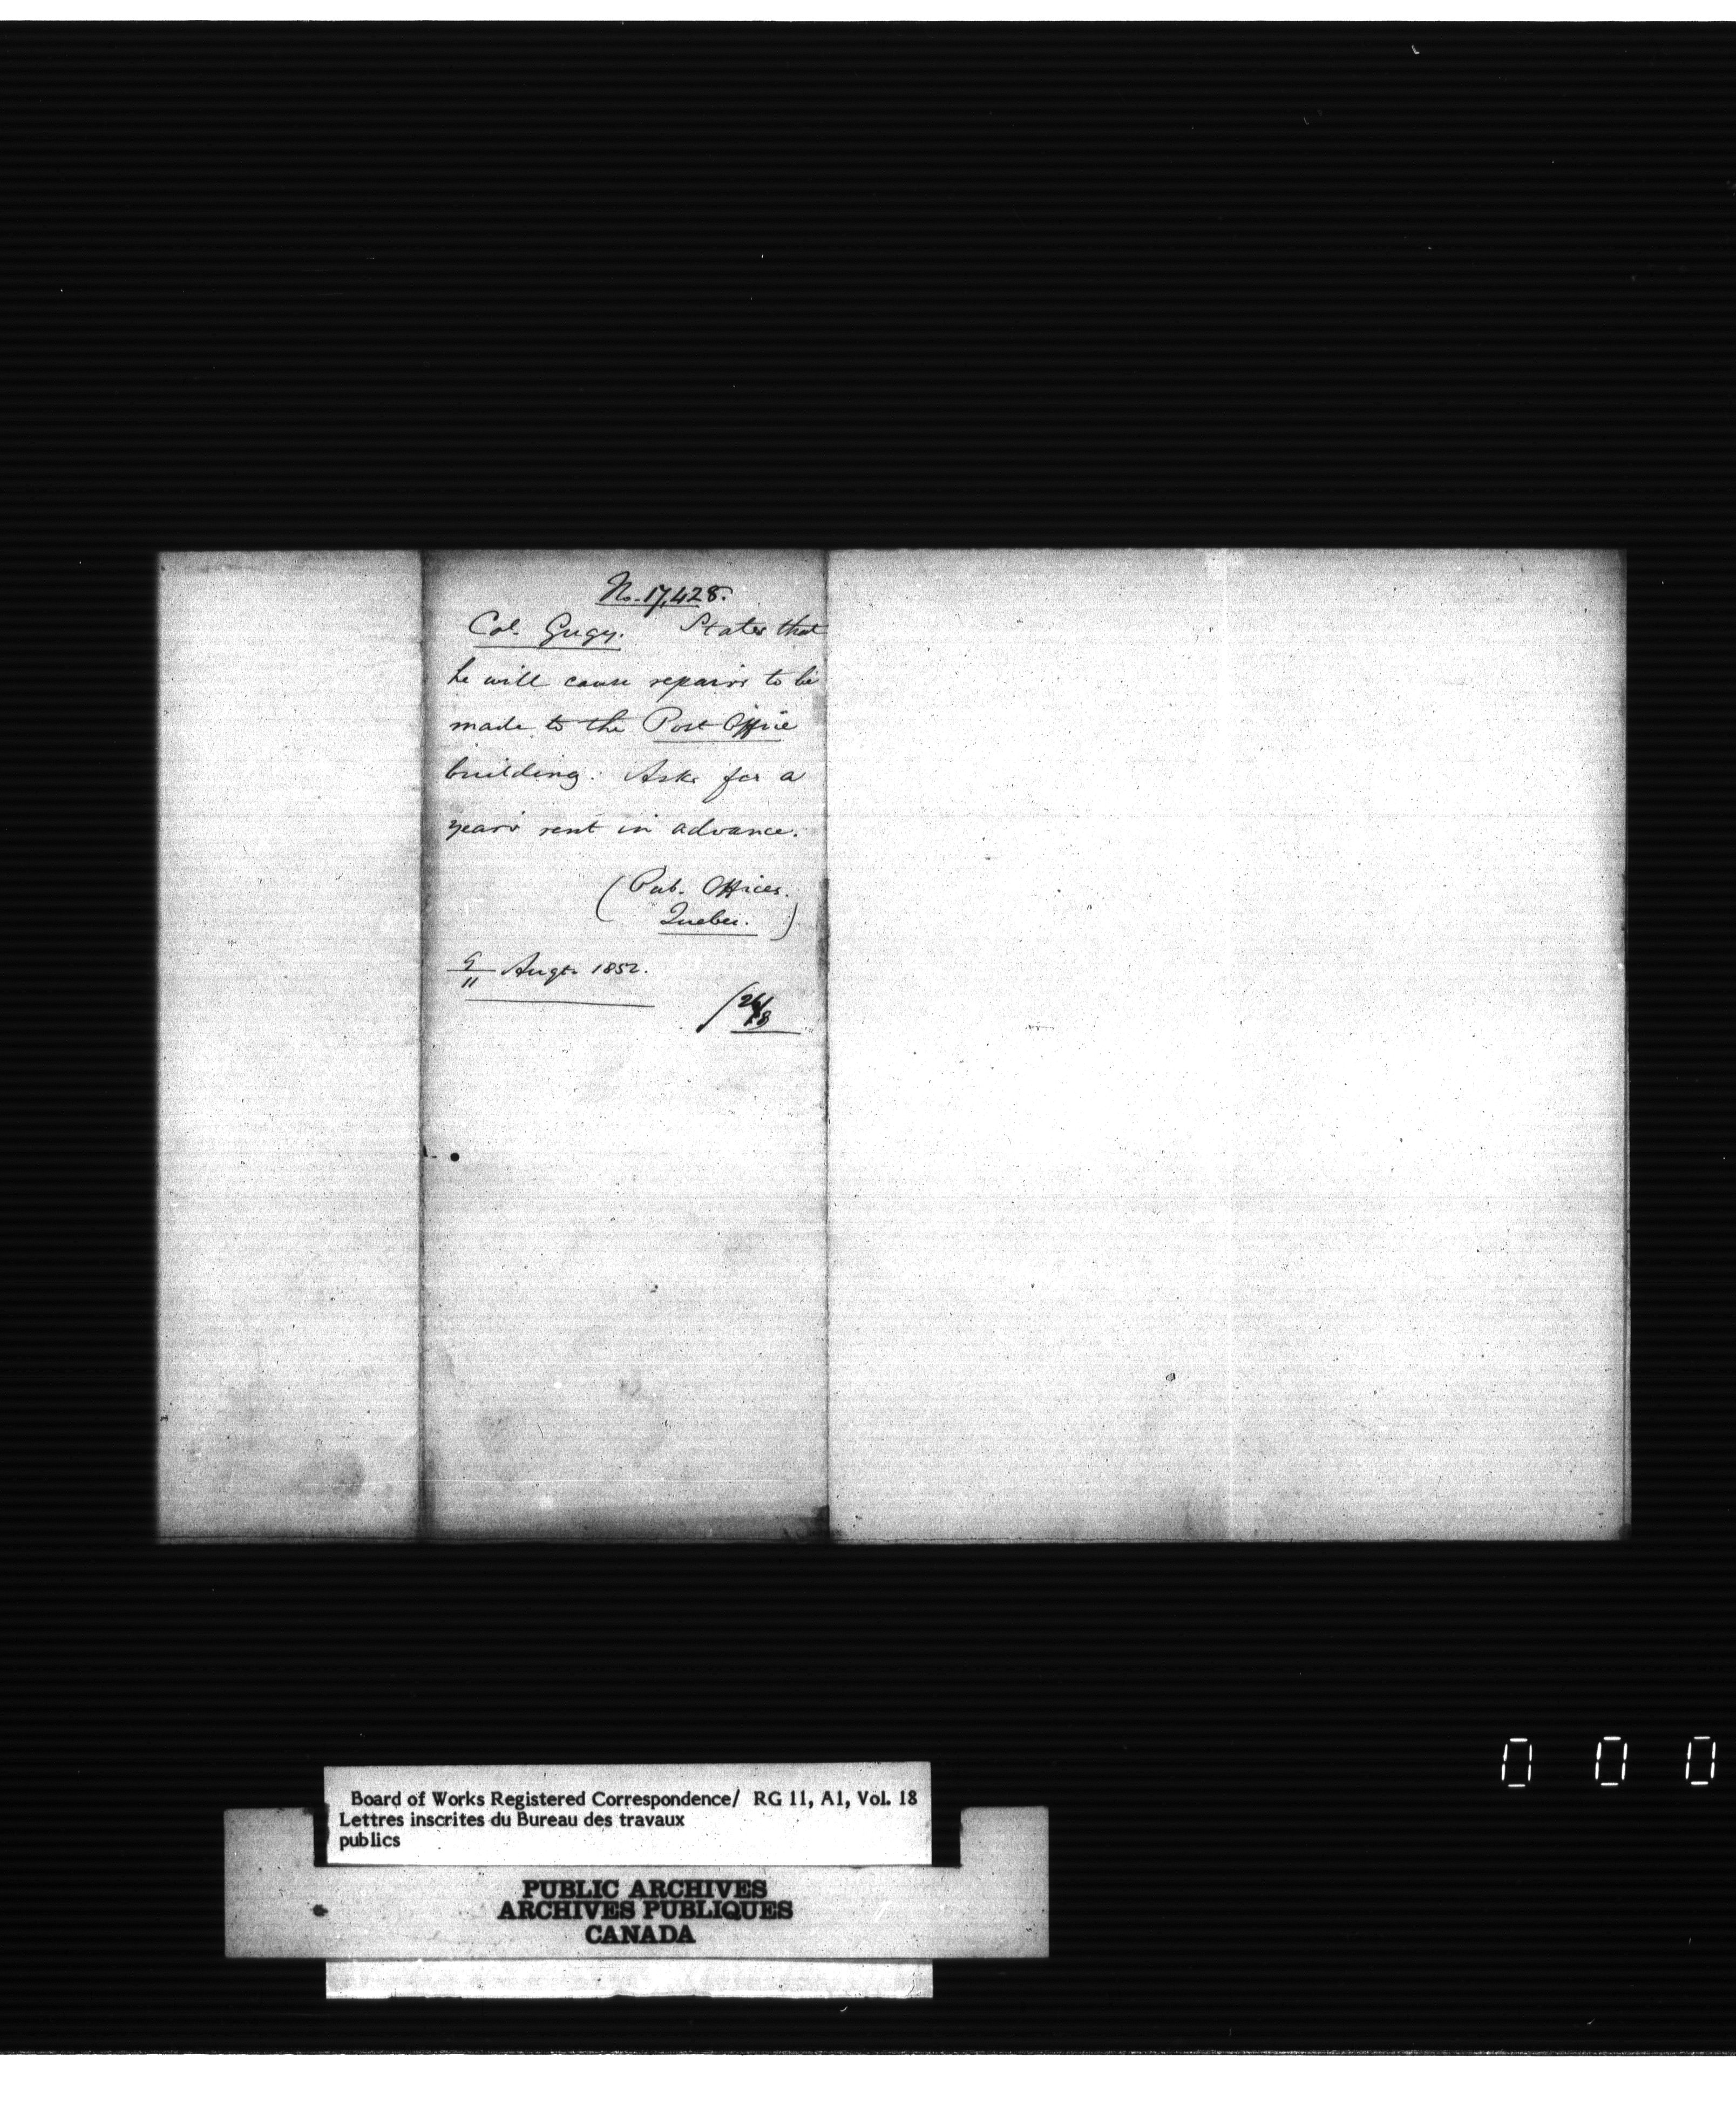 No. 17,428.
Col. Gugy. States that
he will cause repairs to be
made to the Post Office
building. Asks for a
year's rent in advance.
(Pub. Offices.
Quebec.)
9/11 Augt. 1852.
Board of Works Registered Correspondence/ RG 11, A1, Vol. 18
Lettres inscrites du Bureau des travaux
publics
PUBLIC ARCHIVES
ARCHIVES PUBLIQUES
CANADA
0 0 0